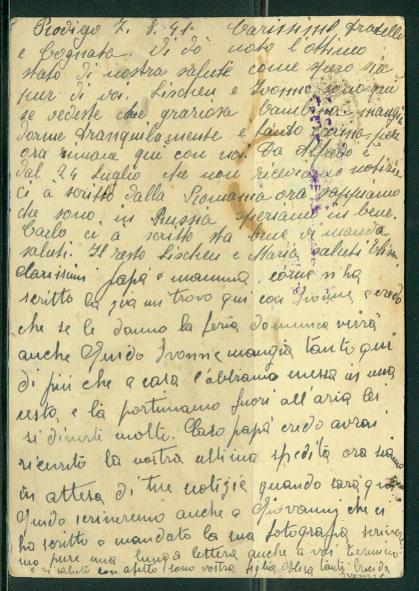 Rodigo 7. 8. 41. Carissimi fratello
e Cognata. Vi dò noto l'ottimo
stato di nostra salute come spero sia
pur di voi. Lischen e Ivonne sono qui
se vedeste che graziosa bambina mangia
dorme tranquilamente e tanto carina, per
ora rimane qui con noi. Da Alfredo è
dal 24 Luglio che non riceviamo notizie
ci a scritto dalla Romania ora sappiamo
che sono in Russia speriamo in bene.
Carlo ci a scritto sta bene vi manda
saluti. Il resto Lischen e Maria saluti
Carissimi papà e mamma, come vi ha
scritto la zia mi trovo qui con Ivonne e credo
che se le danno la feria domenica verrà
anche Guido Ivonne mangia tanto qui
di più che a casa l'abbiamo messa in una
cesto, e la portiamo fuori all'aria lei
si diverte molto. Caro papà credo avrai
ricevuto la nostra ultima spedita ora siamo
in attesa di tue notizie quando sarà qui
Guido scriveremo anche a Giovanni che ci
ha scritto e mandato la sua fotografia scrivere
mo pure una lunga lettera anche a voi. Termino
e vi saluto con affetto sono vostra figlia Elisa tanti
Ivonne